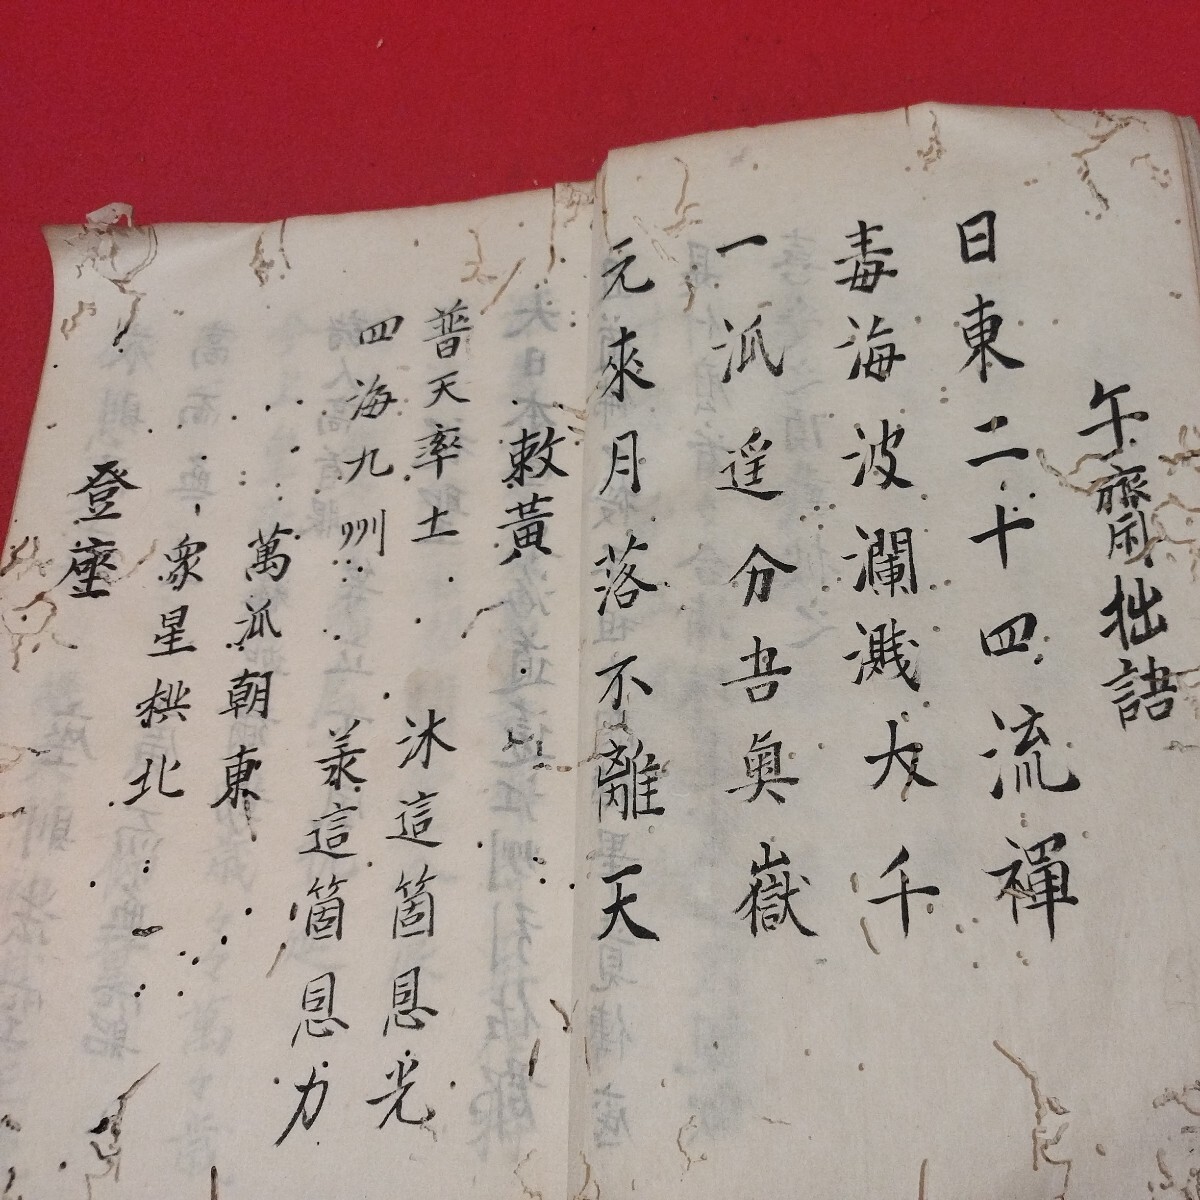 午齋拙語
日東二十四流禪
毒海波瀾濺大千
一派遥分吾奥嶽
元來月落不離天
敕黃
普天率土 沐這箇恩光
四海九州 美這箇恩力
萬派朝東
衆星拱北
登座